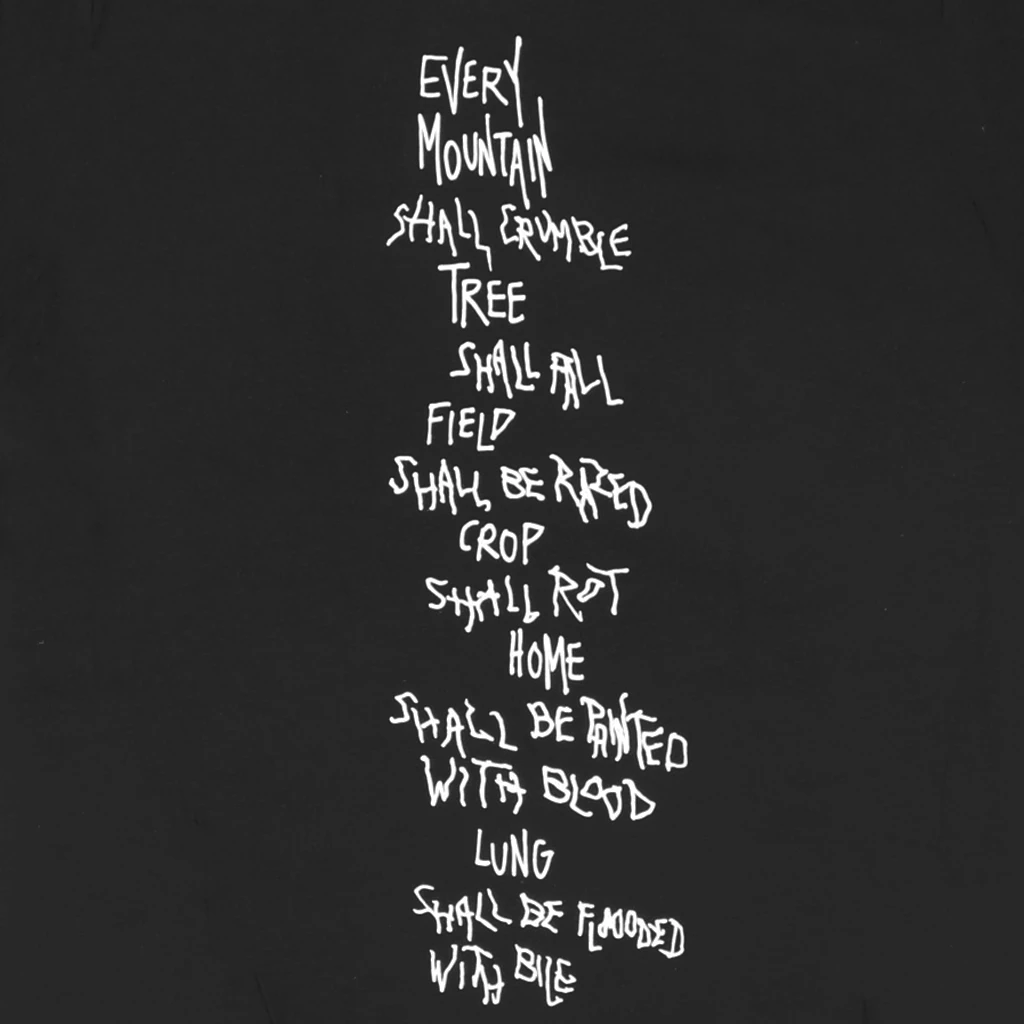 EVERY
MOUNTAIN
SHALL CRUMBLE
TREE
SHALL FALL
FIELD
SHALL BE RAZED
CROP
SHALL ROT
HOME
SHALL BE PAINTED
WITH BLOOD
LUNG
SHALL BE FLOODED
WITH BILE